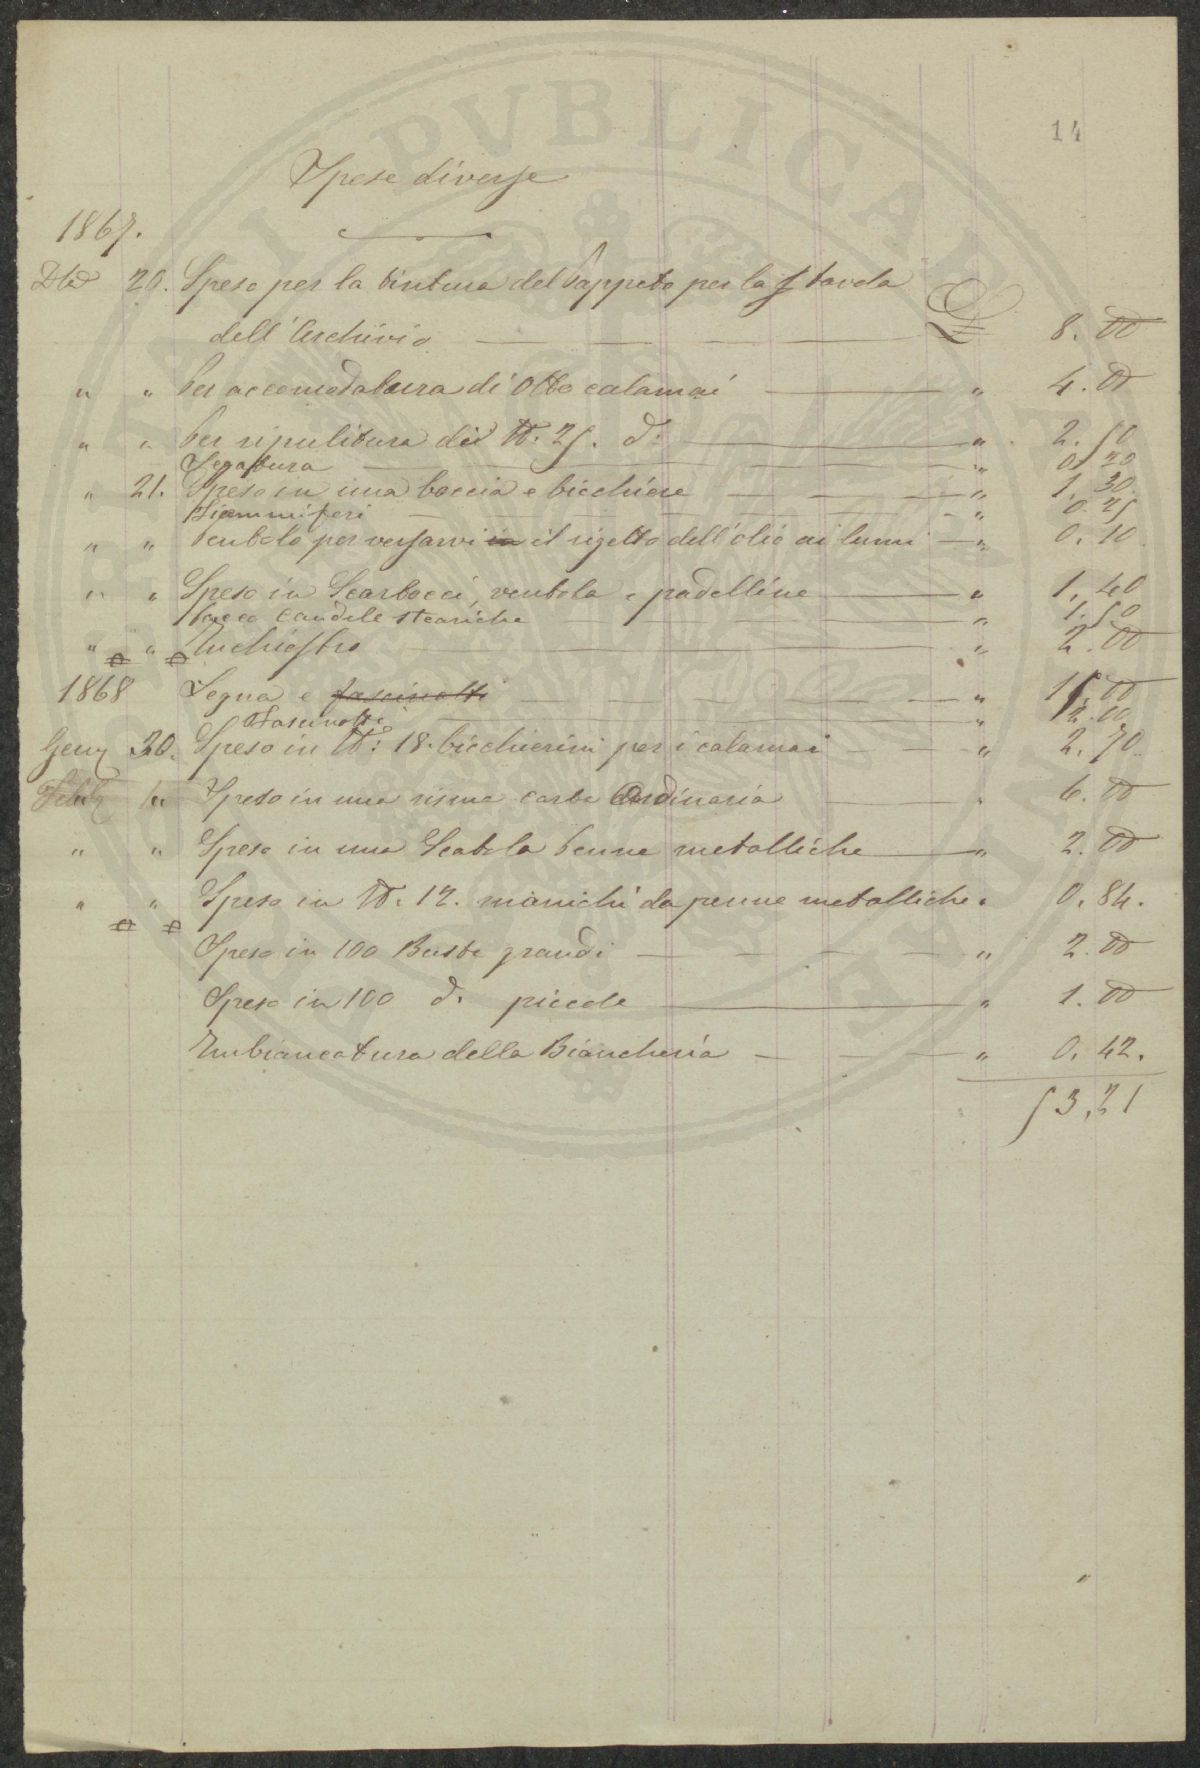 14
Spese diverse
1867.
Dbre 20. Speso per la tintura del Tappeto per la tavola
dell'Archivio £ 8. 00
" " Per accomodatura di Otto calamai " 4. 00
" " Per ripulitura di N: 25. d: " 2. 50
Segatura " 0. 20
" 21. Speso in una boccia e bicchiere " 1. 30.
Fiammiferi " 0. 25
" " Pentola per versarvi in il rigetto dell'olio ai lumi " 0. 10
" " Speso in Scartocci, ventola e padelline " 1. 40
Pacco candele steariche " 1. 50
" " Inchiostro " 2. 00
1868 Legna e fascinotti " 15. 00
Fascinotti " 2. 00
Genn 30. Speso in N: 18. bicchierini per i calamai " 2. 70
" Speso in una risma carta Ordinaria " 6. 00
" " Speso in una Scatola Penne metalliche " 2. 00
" " Speso in N. 12. manichi da penne metalliche " 0. 84.
Speso in 100 Buste grandi " 2. 00
Speso in 100 d. piccole " 1. 00
Imbiancatura della Biancheria " 0. 42.
53,21
PVBLICA